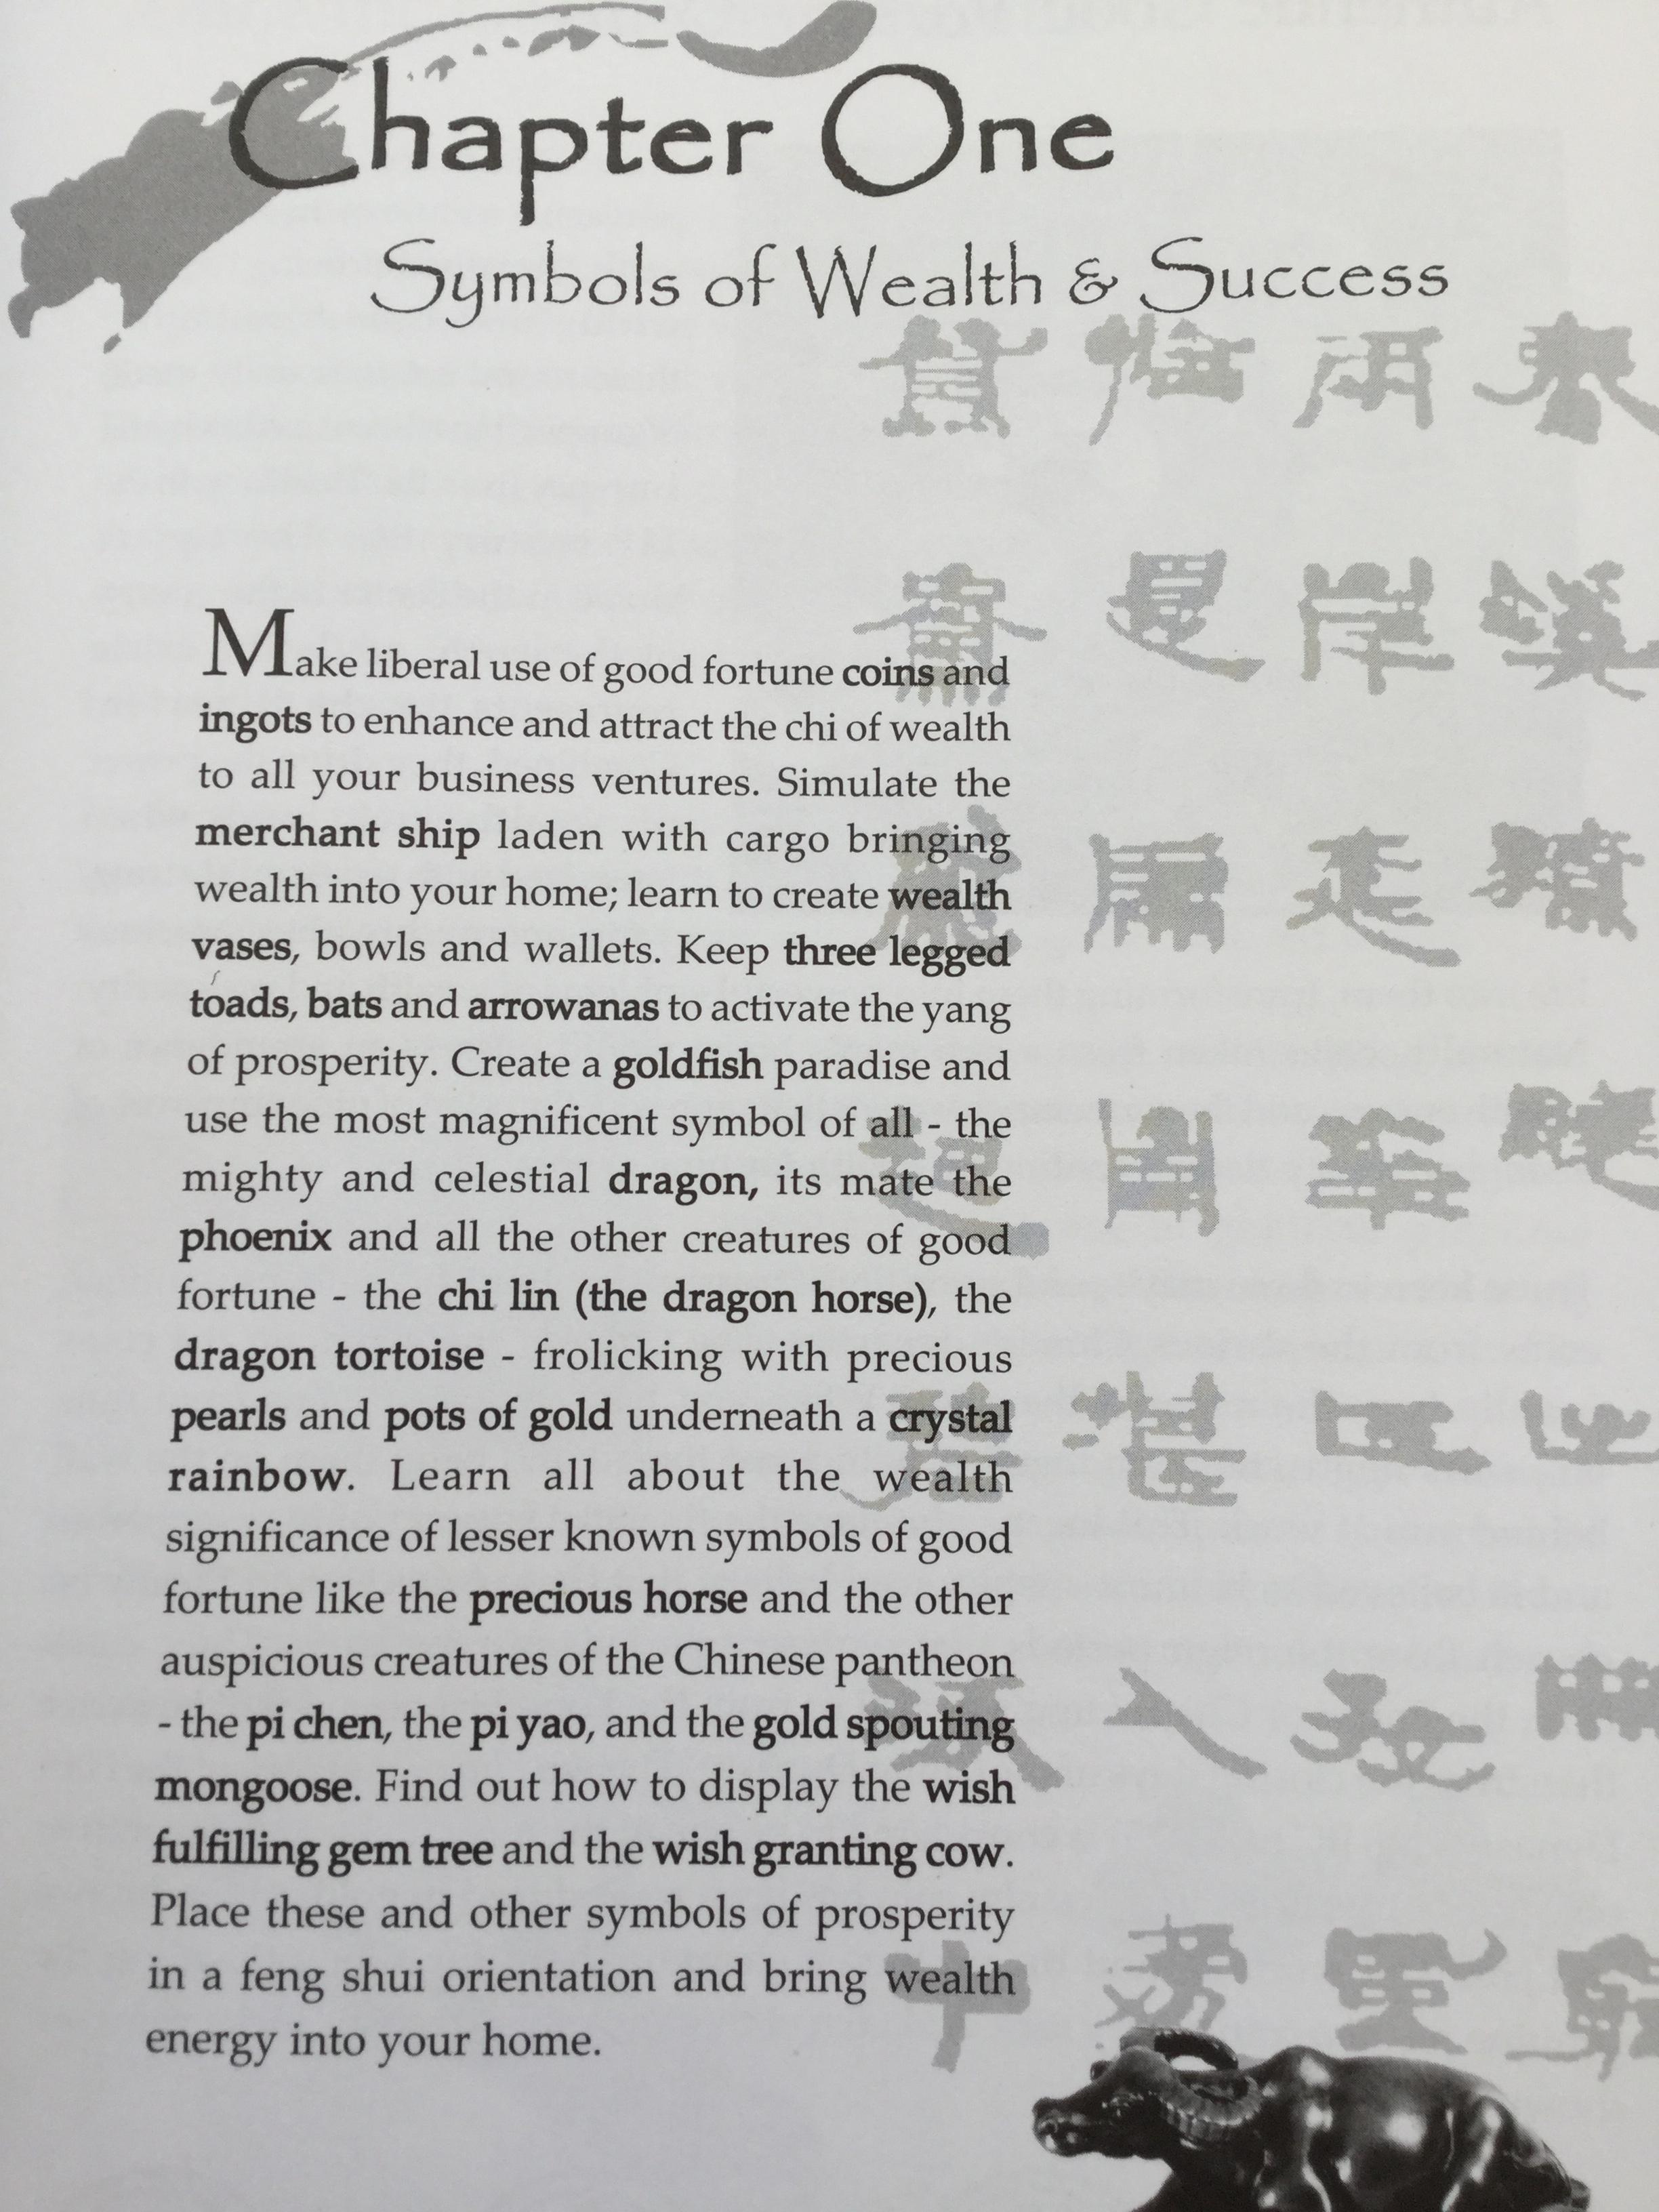 Chapter One
Symbols of Wealth & Success
Make liberal use of good fortune coins and
ingots to enhance and attract the chi of wealth
to all your business ventures. Simulate the
merchant ship laden with cargo bringing
wealth into your home; learn to create wealth
vases, bowls and wallets. Keep three legged
toads, bats and arrowanas to activate the yang
of prosperity. Create a goldfish paradise and
use the most magnificent symbol of all - the
mighty and celestial dragon, its mate the
phoenix and all the other creatures of good
fortune - the chi lin (the dragon horse), the
dragon tortoise - frolicking with precious
pearls and pots of gold underneath a crystal
rainbow. Learn all about the wealth
significance of lesser known symbols of good
fortune like the precious horse and the other
auspicious creatures of the Chinese pantheon
- the pi chen, the pi yao, and the gold spouting
mongoose. Find out how to display the wish
fulfilling gem tree and the wish granting cow.
Place these and other symbols of prosperity
in a feng shui orientation and bring wealth
energy into your home.